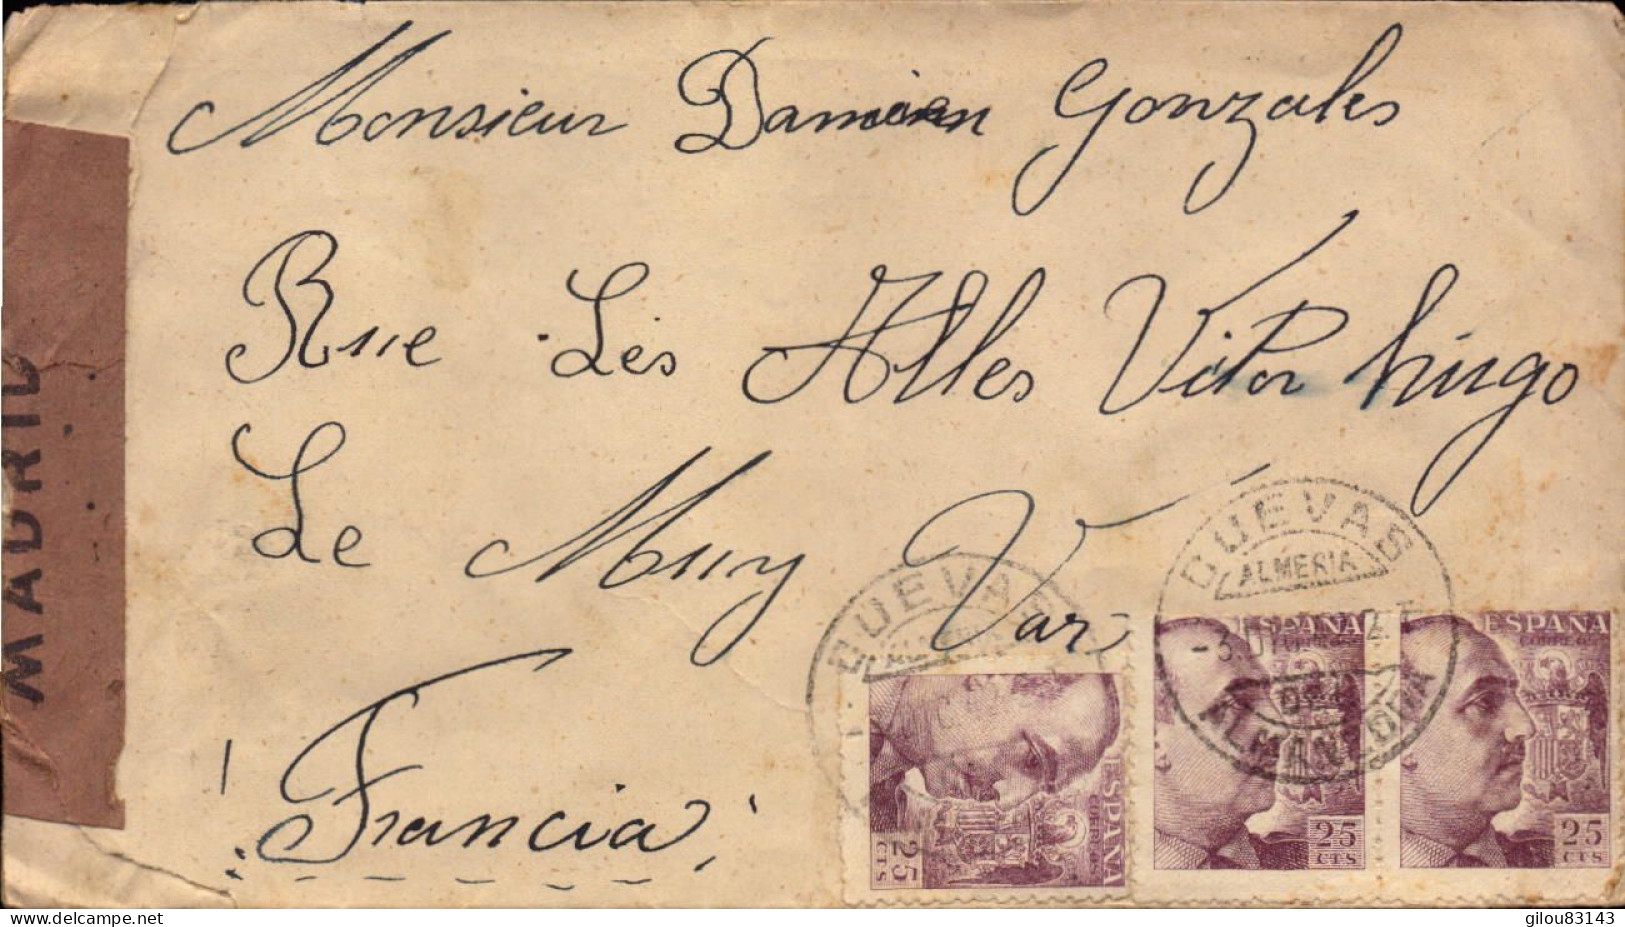 Monsieur Damien Gonzales
Rue Les Alles Vitor hugo
Le Muy Var
Francia
MADRID
CUEVAS
ALMERIA
CUEVAS
ALMERIA
-3.DIC
DE
ALMANZORA
ESPAÑA
CORREOS
25
CTS
ESPAÑA
CORREOS
25
CTS
ESPAÑA
CORREOS
25
CTS
delcampe.net
gilou83143